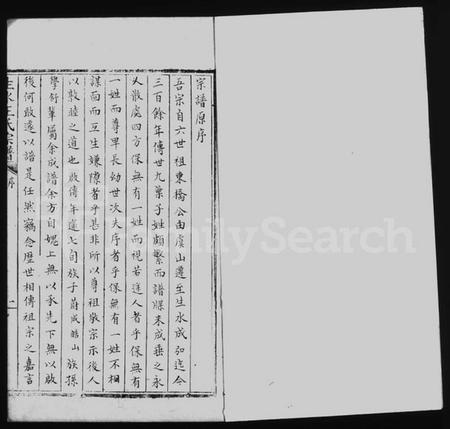 宗譜原序
吾宗自六世祖東橋公由虞山遷至生水成弘迄今
三百餘年傳世九葉子姓頗繁而譜牒未成垂之永
久散處四方保無有一姓而視若途人者乎保無有
一姓而尊卑長幼世次失序者乎保無有一姓不相
謀面而互生嫌隙者乎甚非所以尊祖敬宗示後人
以敦睦之道也啟傳年逾七旬族子蔚成皓山族孫
學衍輩屬余成譜余方自媿上無以承先下無以啟
後何敢遽以譜是任然竊念歷世相傳祖宗之嘉言
王氏宗譜 序
FamilySearch